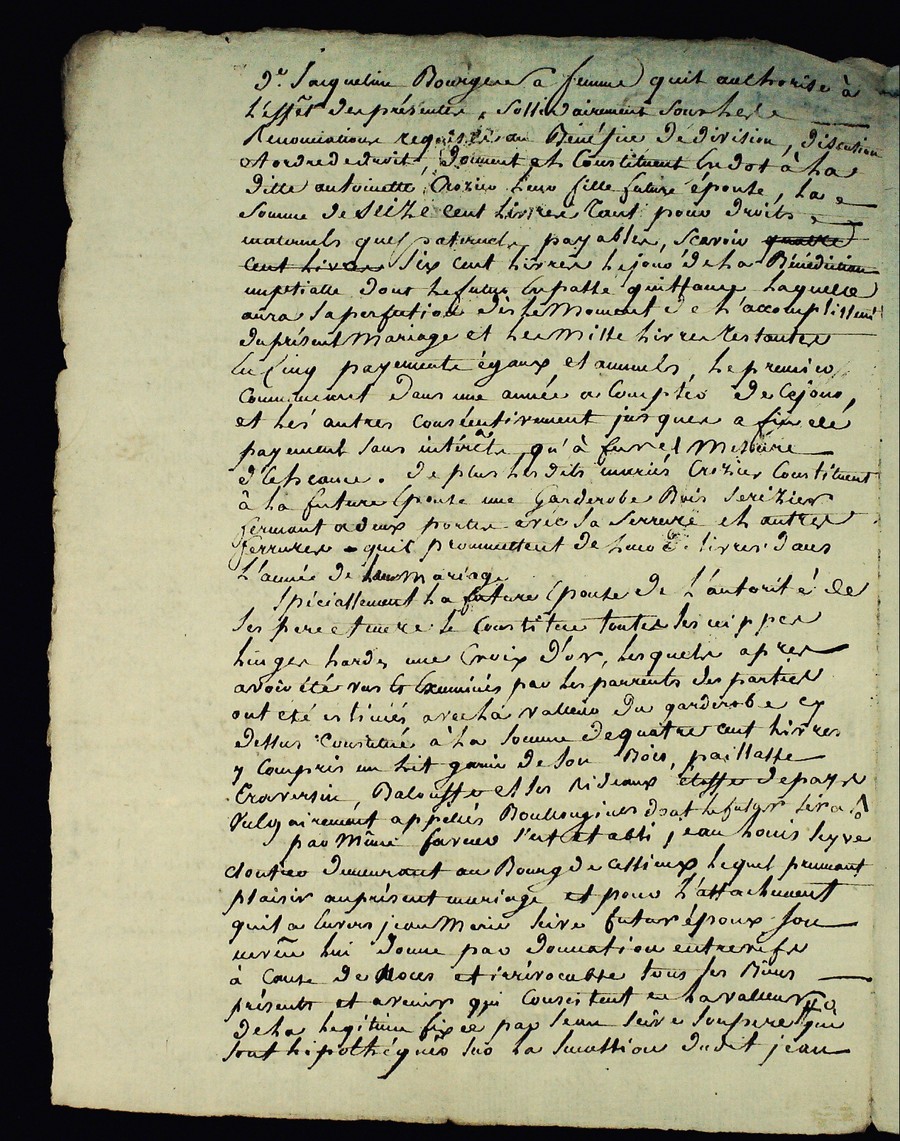 De. Jacqueline Bourgere sa femme quil authorise à
L'effet des présentes, sollidairement sous les
Renonciations requises au Bénéfice de division, discution
et ordre de droit, donnent et Constituent En dot à La
ditte antoinette Crozier Leur fille future épouse, La
Somme de seize cent Livres tant pour droits
maternels que paternels, payables, scavoir quatre
cent Livres Six cent Livres Le jour de La Bénédiction
nuptialle dont Le futur En passe quittance Laquelle
aura Sa perfection dès Le Moment de L'accomplissement
du présent Mariage et Les Mille Livres restantes
En Cinq payements égaux, et annuels, Le premier
Commencent dans une année a Compter de Ce jour,
et Les autres Consécutivement jusques a fin de
payement sans intérêts, qu'à fur et Mesure
d'Echeance. de plus Les dits mariés Crozier Constituent
à La future Epouse une Garderobe Bois Serizier
fermant a deux portes avec Sa Serrure et autres
ferrures quils prommettent de Leur Livrer dans
L'année de Leur Mariage
Spéciallement La future Epouse de L'autorité de
Ses pere et mere Se Constitue toutes Ses nippes
Linges hardes une Croix D'or, Lesquels apres
avoir été vus Et Examinés par Les parrents des parties
ont eté estimés avec La valleur du garderobe cy
dessus Constitué à La Somme de quatre cent Livres
y Compris un Lit garni de Son Bois, paillasse
Traversin, Balouffe et Ses Rideaux étoffe de pays
Vulgairement appellés Boullongines dont Le futur Sera
par Même faveur S'est etabli, jean Louis Seyve
cloutier Demeurant au Bourg de Cellieux Lequel prennant
plaisir au présent mariage et pour L'attachement
quil a Envers jean Marie Seive futur époux Son
neveu Lui Donne par donnation entrevifs
à Cause de Noces et irrévocable tous Ses Biens
présents et avenir qui Consistent en La valleur
de La Legitime fixée par Jean Seive Son pere qui
sont hipothéqués sur La Succession dudit jean